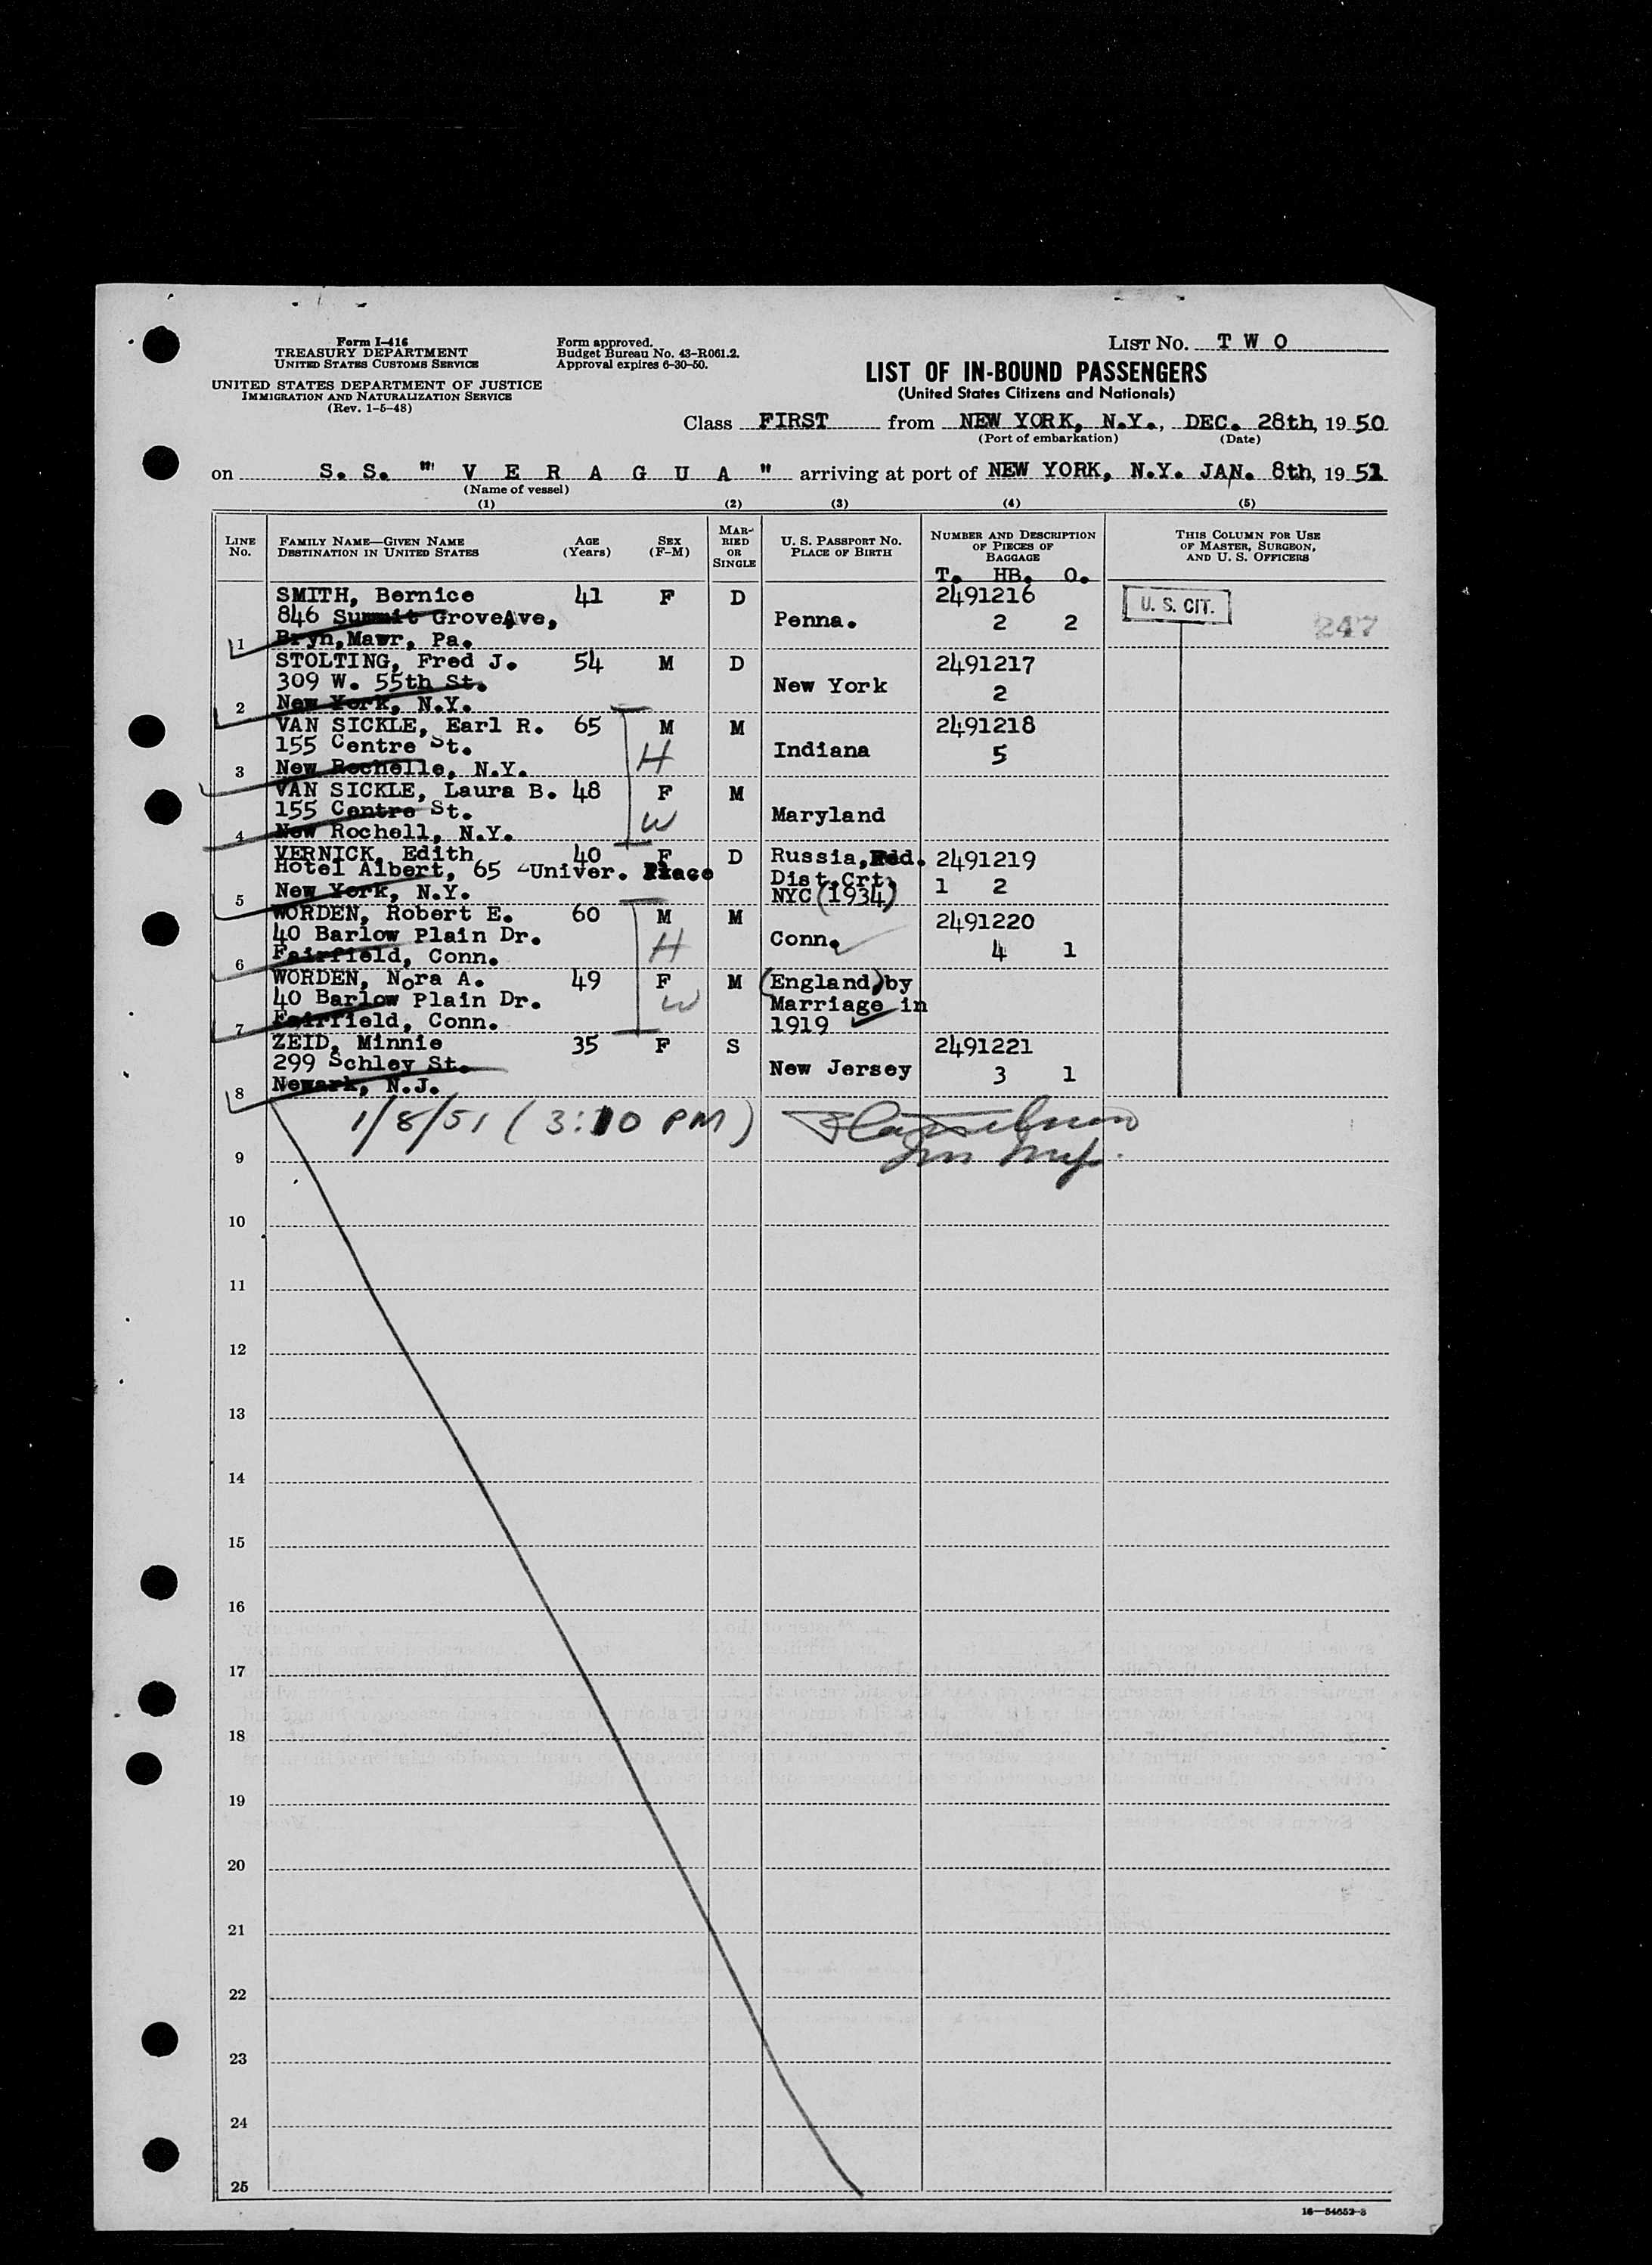 Form I-416
TREASURY DEPARTMENT
UNITED STATES CUSTOMS SERVICE
UNITED STATES DEPARTMENT OF JUSTICE
IMMIGRATION AND NATURALIZATION SERVICE
(Rev. 1-5-48)
Form approved.
Budget Bureau No. 43-R061.2.
Approval expires 6-30-50.
LIST No. T W O
LIST OF IN-BOUND PASSENGERS
(United States Citizens and Nationals)
Class FIRST from NEW YORK, N.Y., DEC. 28th, 1950
(Port of embarkation) (Date)
on S. S. "' V E R A G U A " arriving at port of NEW YORK, N.Y. JAN. 8th, 1951
(Name of vessel)
(1) (2) (3) (4) (5)
LINE No. FAMILY NAME—GIVEN NAME DESTINATION IN UNITED STATES AGE (Years) SEX (F-M) MARRIED OR SINGLE U. S. PASSPORT No. PLACE OF BIRTH NUMBER AND DESCRIPTION OF PIECES OF BAGGAGE THIS COLUMN FOR USE OF MASTER, SURGEON, AND U. S. OFFICERS
T. HB. O.
SMITH, Bernice 41 F D 2491216 U. S. CIT.
846 Summit GroveAve, Penna. 2 2 247
1 Bryn,Mawr, Pa.
STOLTING, Fred J. 54 M D 2491217
309 W. 55th St. New York 2
2 New York, N.Y.
VAN SICKLE, Earl R. 65 M M 2491218
155 Centre St. H Indiana 5
3 New Rochelle, N.Y.
VAN SICKLE, Laura B. 48 F M
155 Centre St. W Maryland
4 New Rochell, N.Y.
VERNICK, Edith 40 F D Russia, Fed. 2491219
Hotel Albert, 65 Univer. Place Dist.Crt. 1 2
5 New York, N.Y. NYC (1934)
WORDEN, Robert E. 60 M M 2491220
40 Barlow Plain Dr. H Conn. 4 1
6 Fairfield, Conn.
WORDEN, Nora A. 49 F M (England) by
40 Barlow Plain Dr. W Marriage in
7 Fairfield, Conn. 1919
ZEID, Minnie 35 F S 2491221
299 Schley St. New Jersey 3 1
8 Newark, N.J.
1/8/51 (3:10 PM)
9
10
11
12
13
14
15
16
17
18
19
20
21
22
23
24
25
16—54652-3